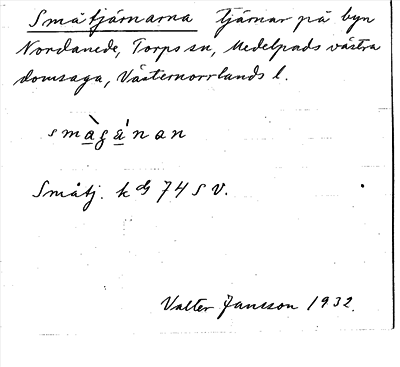 Småtjärnarna tjärnar på byn
Nordanede, Torps sn, Medelpads västra
domsaga, Västernorrlands l.
Småtj. k bl 74 S V.
Valter Jansson 1932.